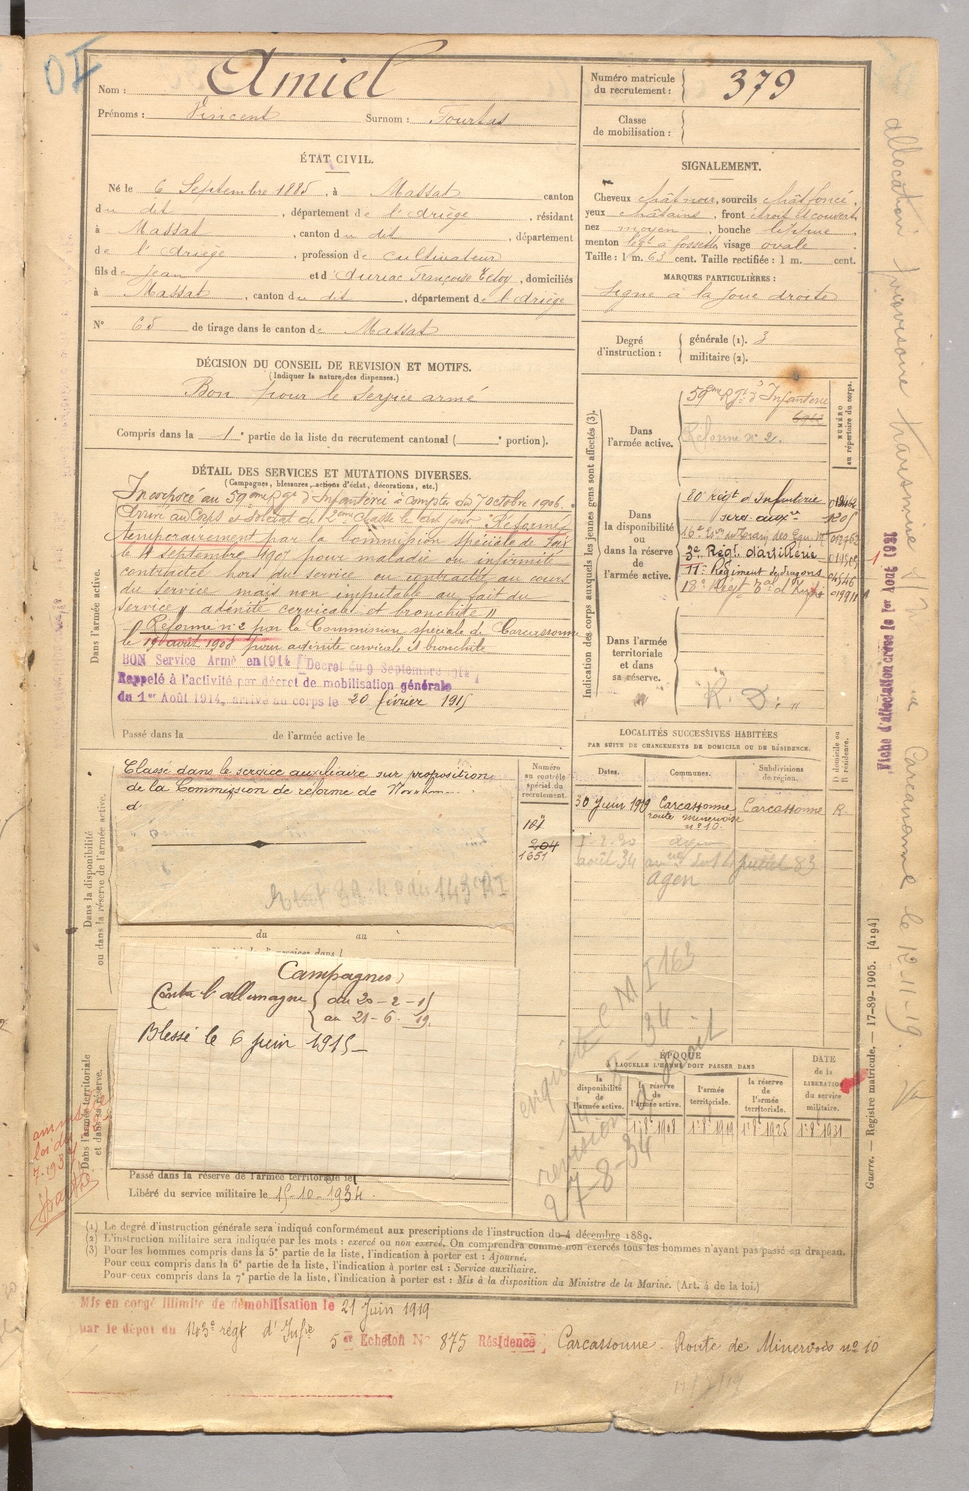 Nom : Amiel
Prénoms : Vincent Surnom : Fourtas
Numéro matricule du recrutement : 379
Classe de mobilisation :
ÉTAT CIVIL.
Né le 6 Septembre 1885, à Massat canton
du dit, département de l'Ariège, résidant
à Massat, canton du dit, département
de l'Ariège, profession de cultivateur
fils de Jean et d'Auriac Françoise, domiciliés
à Massat, canton du dit, département de l'Ariège
N° 65 de tirage dans le canton de Massat
SIGNALEMENT.
Cheveux chât noir, sourcils chât foncé,
yeux chatains, front droit découvert
nez moyen, bouche
menton à fossette visage ovale
Taille : 1 m. 63 cent. Taille rectifiée : 1 m. cent.
MARQUES PARTICULIÈRES :
Signe à la joue droite
Degré d'instruction : générale (1). 3
militaire (2).
DÉCISION DU CONSEIL DE REVISION ET MOTIFS.
(Indiquer la nature des dispenses.)
Bon pour le service armé
Compris dans la 1e partie de la liste du recrutement cantonal ( e portion).
DÉTAIL DES SERVICES ET MUTATIONS DIVERSES.
(Campagnes, blessures, actions d'éclat, décorations, etc.)
Dans l'armée active.
Incorporé au 59eme Rgt d'Infanterie à compter du 7 octobre 1906.
Arrivé au Corps et Soldat de 2eme classe le dit jour. Réformé
temporairement par la Commission spéciale de Foix
le 14 septembre 1907 pour maladie ou infirmité
contractée hors du service ou contractée au cours
du service mais non imputable au fait du
service " adénite cervicale et bronchite "
Réformé n° 2 par la Commission spéciale de Carcassonne
le août 1908 pour adénite cervicale et bronchite
BON Service Armé en 1914 (Décret du 9 Septembre 1914)
Rappelé à l'activité par décret de mobilisation générale
du 1er Août 1914, arrivé au corps le 20 février 1915
Passé dans la de l'armée active le
Indication des corps auxquels les jeunes gens sont affectés (3).
NUMÉRO au répertoire du corps.
Dans l'armée active.
59eme Rgt d'Infanterie
Réformé n° 2.
Dans la disponibilité ou dans la réserve de l'armée active.
80 régt d'Infanterie
serv. auxre
3e Régt d'artillerie
11e Régiment de dragons
Dans l'armée territoriale et dans sa réserve.
R. D. "
LOCALITÉS SUCCESSIVES HABITÉES
PAR SUITE DE CHANGEMENTS DE DOMICILE OU DE RÉSIDENCE.
Dates. Communes. Subdivisions de région. D domicile ou R résidence.
30 Juin 1919 Carcassonne Carcassonne R.
route Minervois
n° 10.
août 34
agen
Dans la disponibilité ou dans la réserve de l'armée active.
Classé dans le service auxiliaire sur proposition
de la Commission de réforme de
d'
Numéro au contrôle spécial du recrutement.
107
204
1651
du au
Campagnes
Contre l'allemagne du 20-2-15
au 21-6-19.
Blessé le 6 juin 1915
Dans l'armée territoriale et dans sa réserve.
Passé dans la réserve de l'armée territoriale le
Libéré du service militaire le 15-10-1934.
ÉPOQUE
À LAQUELLE L'HOMME DOIT PASSER DANS
la disponibilité de l'armée active. la réserve de l'armée active. l'armée territoriale. la réserve de l'armée territoriale.
DATE de la LIBÉRATION du service militaire.
revision
27-8-34
(1) Le degré d'instruction générale sera indiqué conformément aux prescriptions de l'instruction du 4 décembre 1889.
(2) L'instruction militaire sera indiquée par les mots : exercé ou non exercé. On comprendra comme non exercés tous les hommes n'ayant pas passé au drapeau.
(3) Pour les hommes compris dans la 5e partie de la liste, l'indication à porter est : Ajourné.
Pour ceux compris dans la 6e partie de la liste, l'indication à porter est : Service auxiliaire.
Pour ceux compris dans la 7e partie de la liste, l'indication à porter est : Mis à la disposition du Ministre de la Marine. (Art. 4 de la loi.)
Mis en congé illimité de démobilisation le 21 Juin 1919
par le dépot du 143e régt d'Infie 5er Echelon N° 875 Résidence, Carcassonne. Route de Minervois n° 10
Guerre. — Registre matricule. — 17-89-1905. [4194]
Fiche d'affectation créée le 1er Août 1921
allocation provisoire transmise à Carcassonne le 12-11-19.